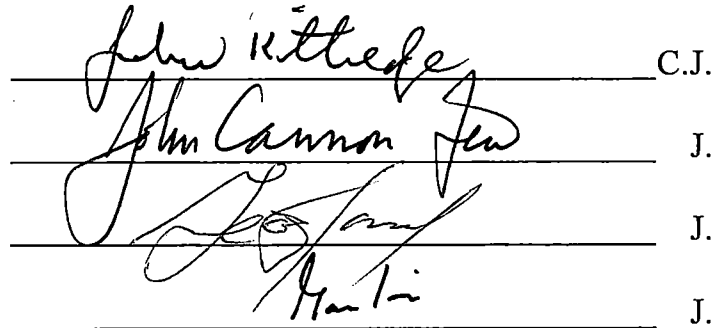 John Kittredge C.J.
John Cannon Few J.
J.
J.